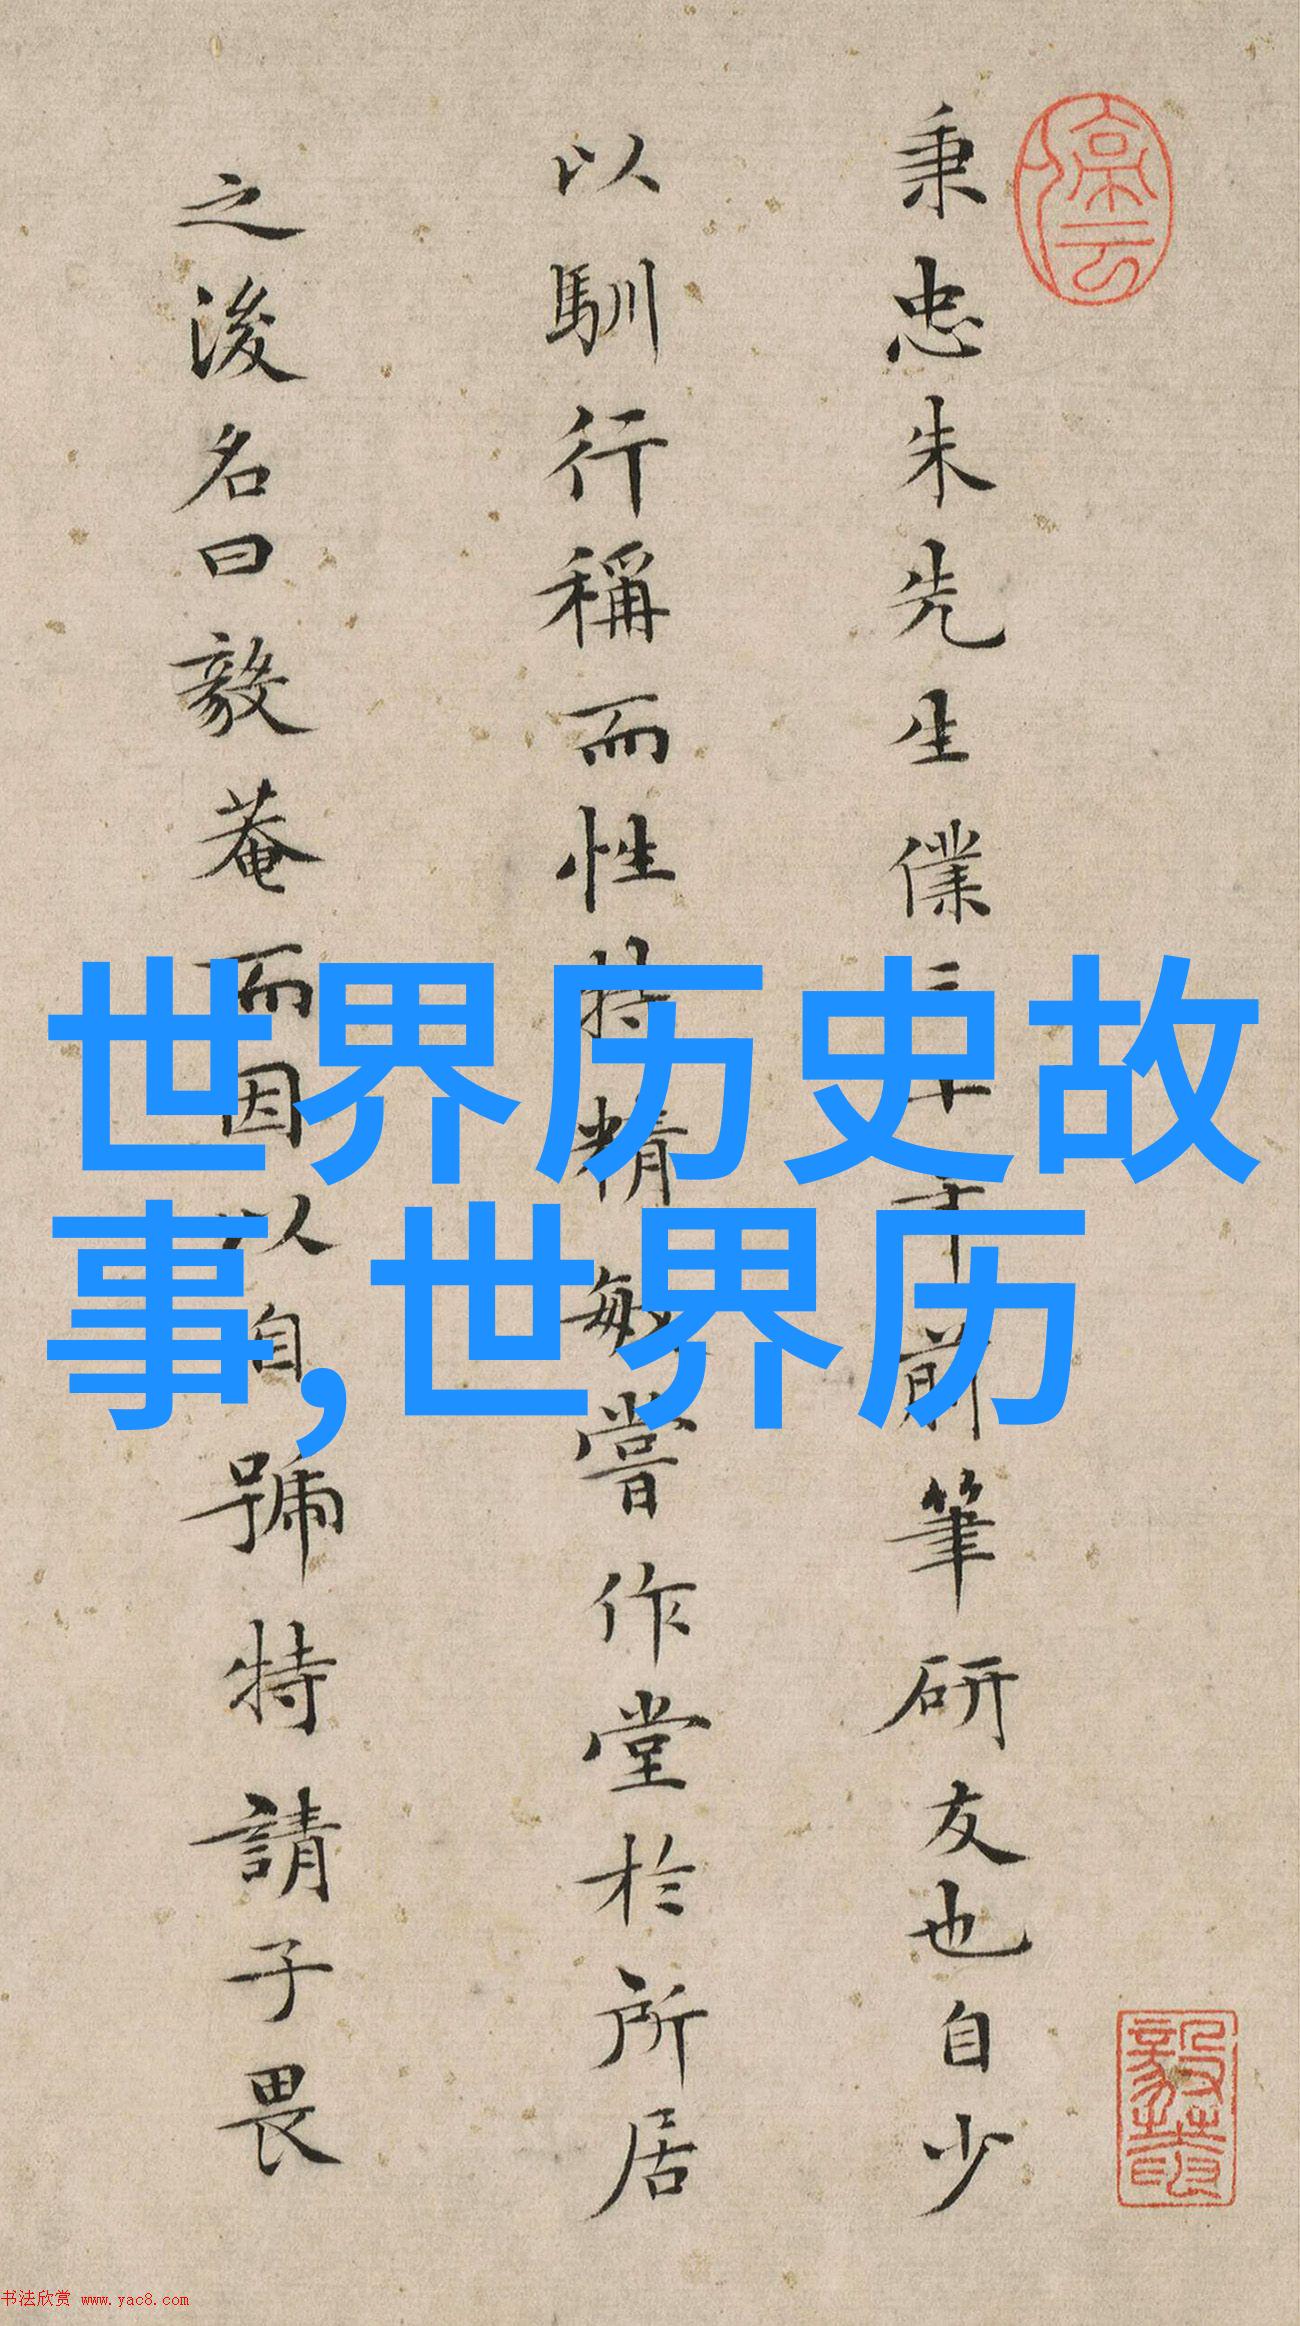 秉忠朱先生僕三十年前筆研友也自少
以馴行稱而性特精敏嘗作堂於所居
之後名曰毅菴而因以自號特請子畏
世界历史故
事,世界历
书法欣赏 www.yac8.com